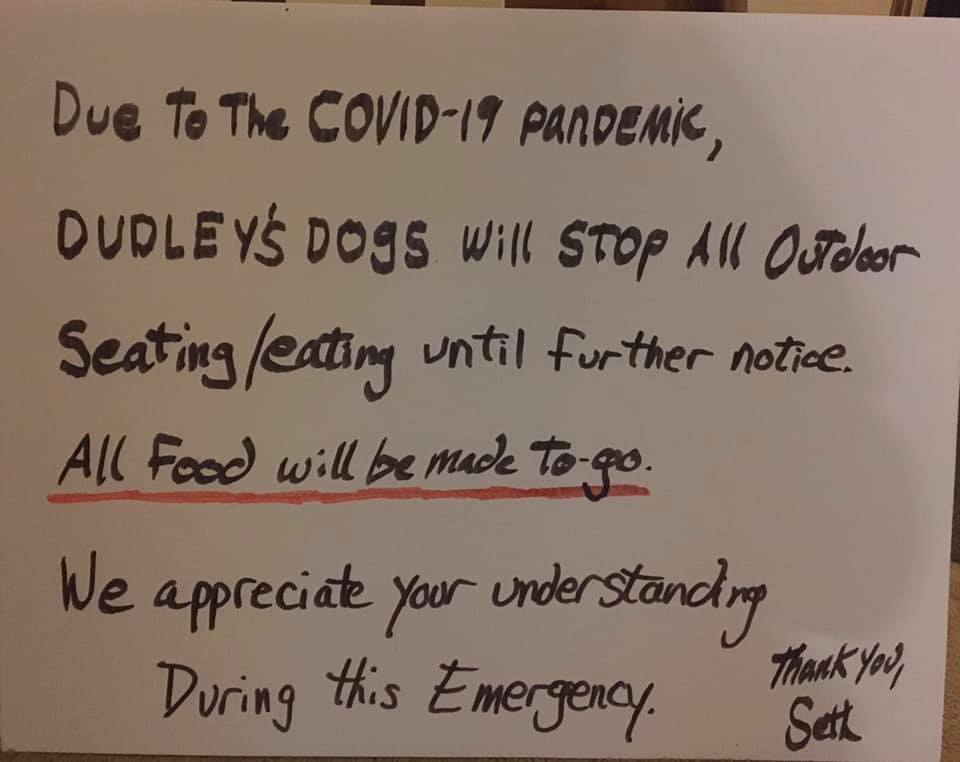 Due To The COVID-19 PANDEMIC,
DUDLEY'S DOGS will STOP All Outdoor
Seating/eating until further notice.
All Food will be made to-go.
We appreciate your understanding
During this Emergency.
Thank You,
Seth